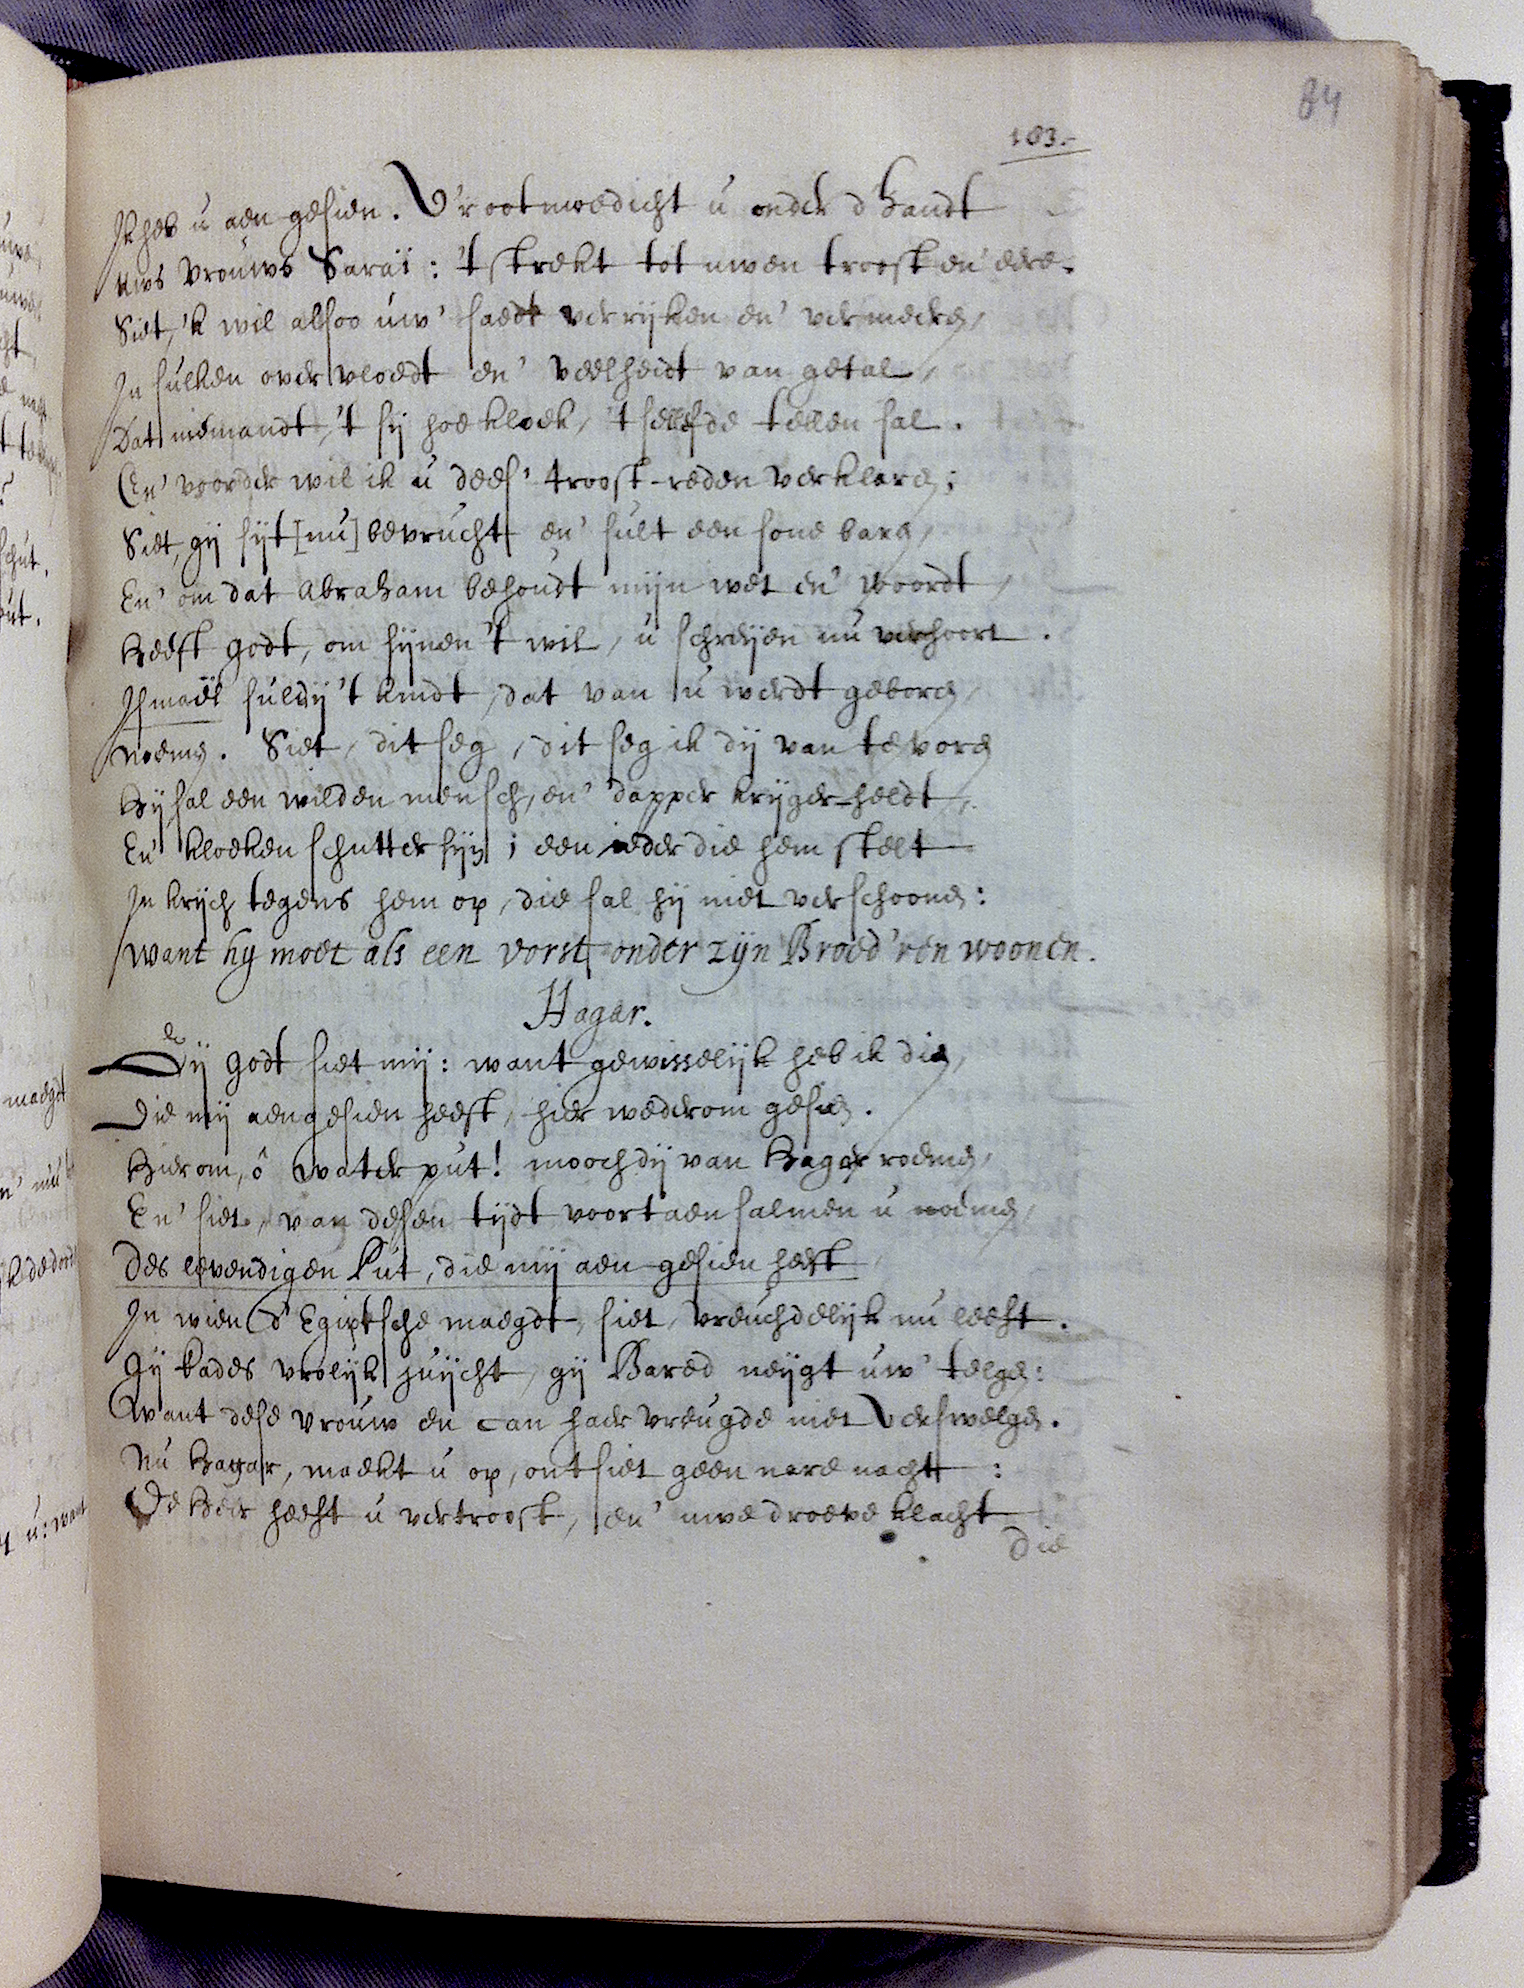 84
103.
Ik heb u aen gesien. V'rootmoedicht u onder d'handt
uws vrouws Saraï: 't strekt tot uwen troost en' eere.
Siet, 'k wil alsoo uw' saedt verrijken en' vermeere,
In sulken overvloedt en' veelheidt van getal,
Dat niemandt, 't sij hoe kloek, 't selfde tellen sal.
En' voorder wil ik u dees' troost-reden verklaren;
Siet, gij sijt [nu] bevrucht en' sult een sone baren,
En' om dat Abraham behoudt mijn wet en' woordt,
Heeft godt, om sijnen 't wil, u schreijen nu verhoort.
Ismaël suldij 't kindt, dat van u werdt geboren,
noemen. Siet, dit seg, dit seg ik dij van te voren
Hij sal een wilden mensch, en' dapper krijger-heldt,
En' kloeken schutter sijn; een ieder die hem stelt
In krijch tegens hem op, die sal hij niet verschoonen:
want hy moet als een vorst onder zijn Broed'ren woonen.
Hagar.
Dij godt siet mij: want gewisselijk heb ik dien,
Die mij aengesien heeft, hier wederom gesien.
Hierom, ô water put! moochdij van Hagar roemen,
En' siet, van desen tijdt voortaen salmen u noemen,
Des levendigen Put, die mij aen gesien heeft
In wien d'Egiptsche maegdt, siet, vreuchdelijk nu leeft.
Gij Kades vrolijk juijcht, gij Bared neijgt uw' telgen:
Want dese vrouw en can haer vreugde niet verswelgen.
Nu Hagar, maekt u op, ontsiet geen nare nacht:
De Heer heeft u vertroost, en' uwe droeve klacht
Die